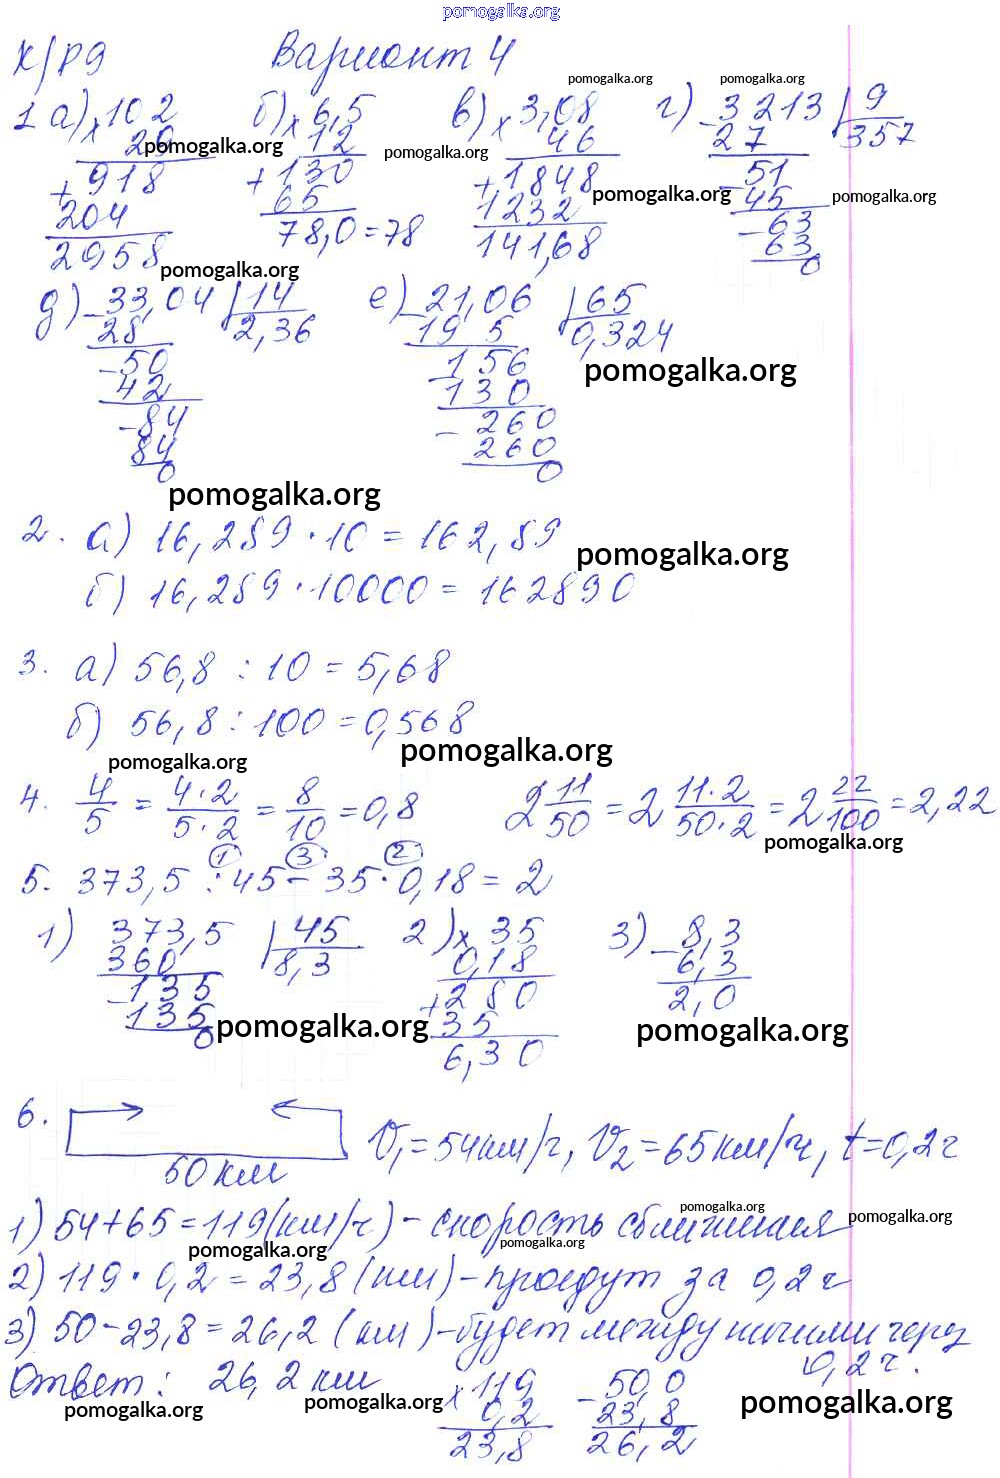 pomogalka.org
К/Р9 Вариант 4
pomogalka.org pomogalka.org
1 а) × 102 б) × 6,5 в) × 3,08 г) - 3213 | 9
29 12 46 27 357
pomogalka.org pomogalka.org
+ 918 + 130 + 1848 - 51
204 65 1232 45
pomogalka.org pomogalka.org
2958 78,0 = 78 141,68 - 63
63
0
pomogalka.org
д) - 33,04 | 14 е) - 21,06 | 65
28 2,36 19 5 0,324
- 50 - 156
42 130
pomogalka.org
- 84 - 260
84 260
0 0
pomogalka.org
2. а) 16,289 · 10 = 162,89
pomogalka.org
б) 16,289 · 10000 = 162890
3. а) 56,8 : 10 = 5,68
б) 56,8 : 100 = 0,568
pomogalka.org pomogalka.org
4. 4/5 = 4·2/5·2 = 8/10 = 0,8 2 11/50 = 2 11·2/50·2 = 2 22/100 = 2,22
pomogalka.org
① ③ ②
5. 373,5 : 45 - 35 · 0,18 = 2
1) 373,5 | 45 2) × 35 3) - 8,3
360 8,3 0,18 6,3
- 135 + 280 2,0
135 35
0 6,30
pomogalka.org pomogalka.org
6.
50 км V₁ = 54 км/ч, V₂ = 65 км/ч, t = 0,2 ч
1) 54 + 65 = 119 (км/ч) - скорость сближения
pomogalka.org pomogalka.org
pomogalka.org pomogalka.org
2) 119 · 0,2 = 23,8 (км) - проедут за 0,2 ч
3) 50 - 23,8 = 26,2 (км) - будет между ними через
0,2 ч.
Ответ: 26,2 км × 119 - 50,0
0,2 23,8
23,8 26,2
pomogalka.org pomogalka.org pomogalka.org